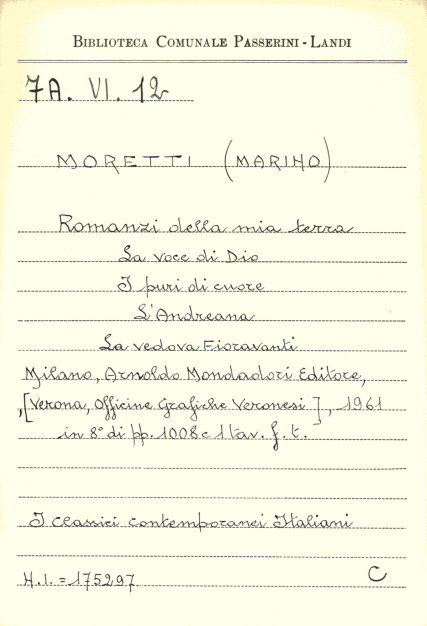 BIBLIOTECA COMUNALE PASSERINI - LANDI
7A. VI. 12
MORETTI (MARINO)
Romanzi della mia terra
La voce di Dio
I puri di cuore
L'Andreana
La vedova Fioravanti
Milano, Arnoldo Mondadori Editore,
[Verona, Officine Grafiche Veronesi], 1961
in 8° di pp. 1008 e 1 tav. f. t.
I classici contemporanei Italiani
H.I. = 175297 C